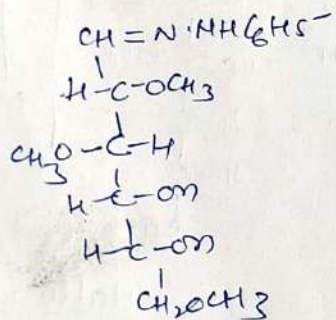 CH=N·NHC6H5
H-C-OCH3
CH3O-C-H
H-C-OH
H-C-OH
CH2OCH3